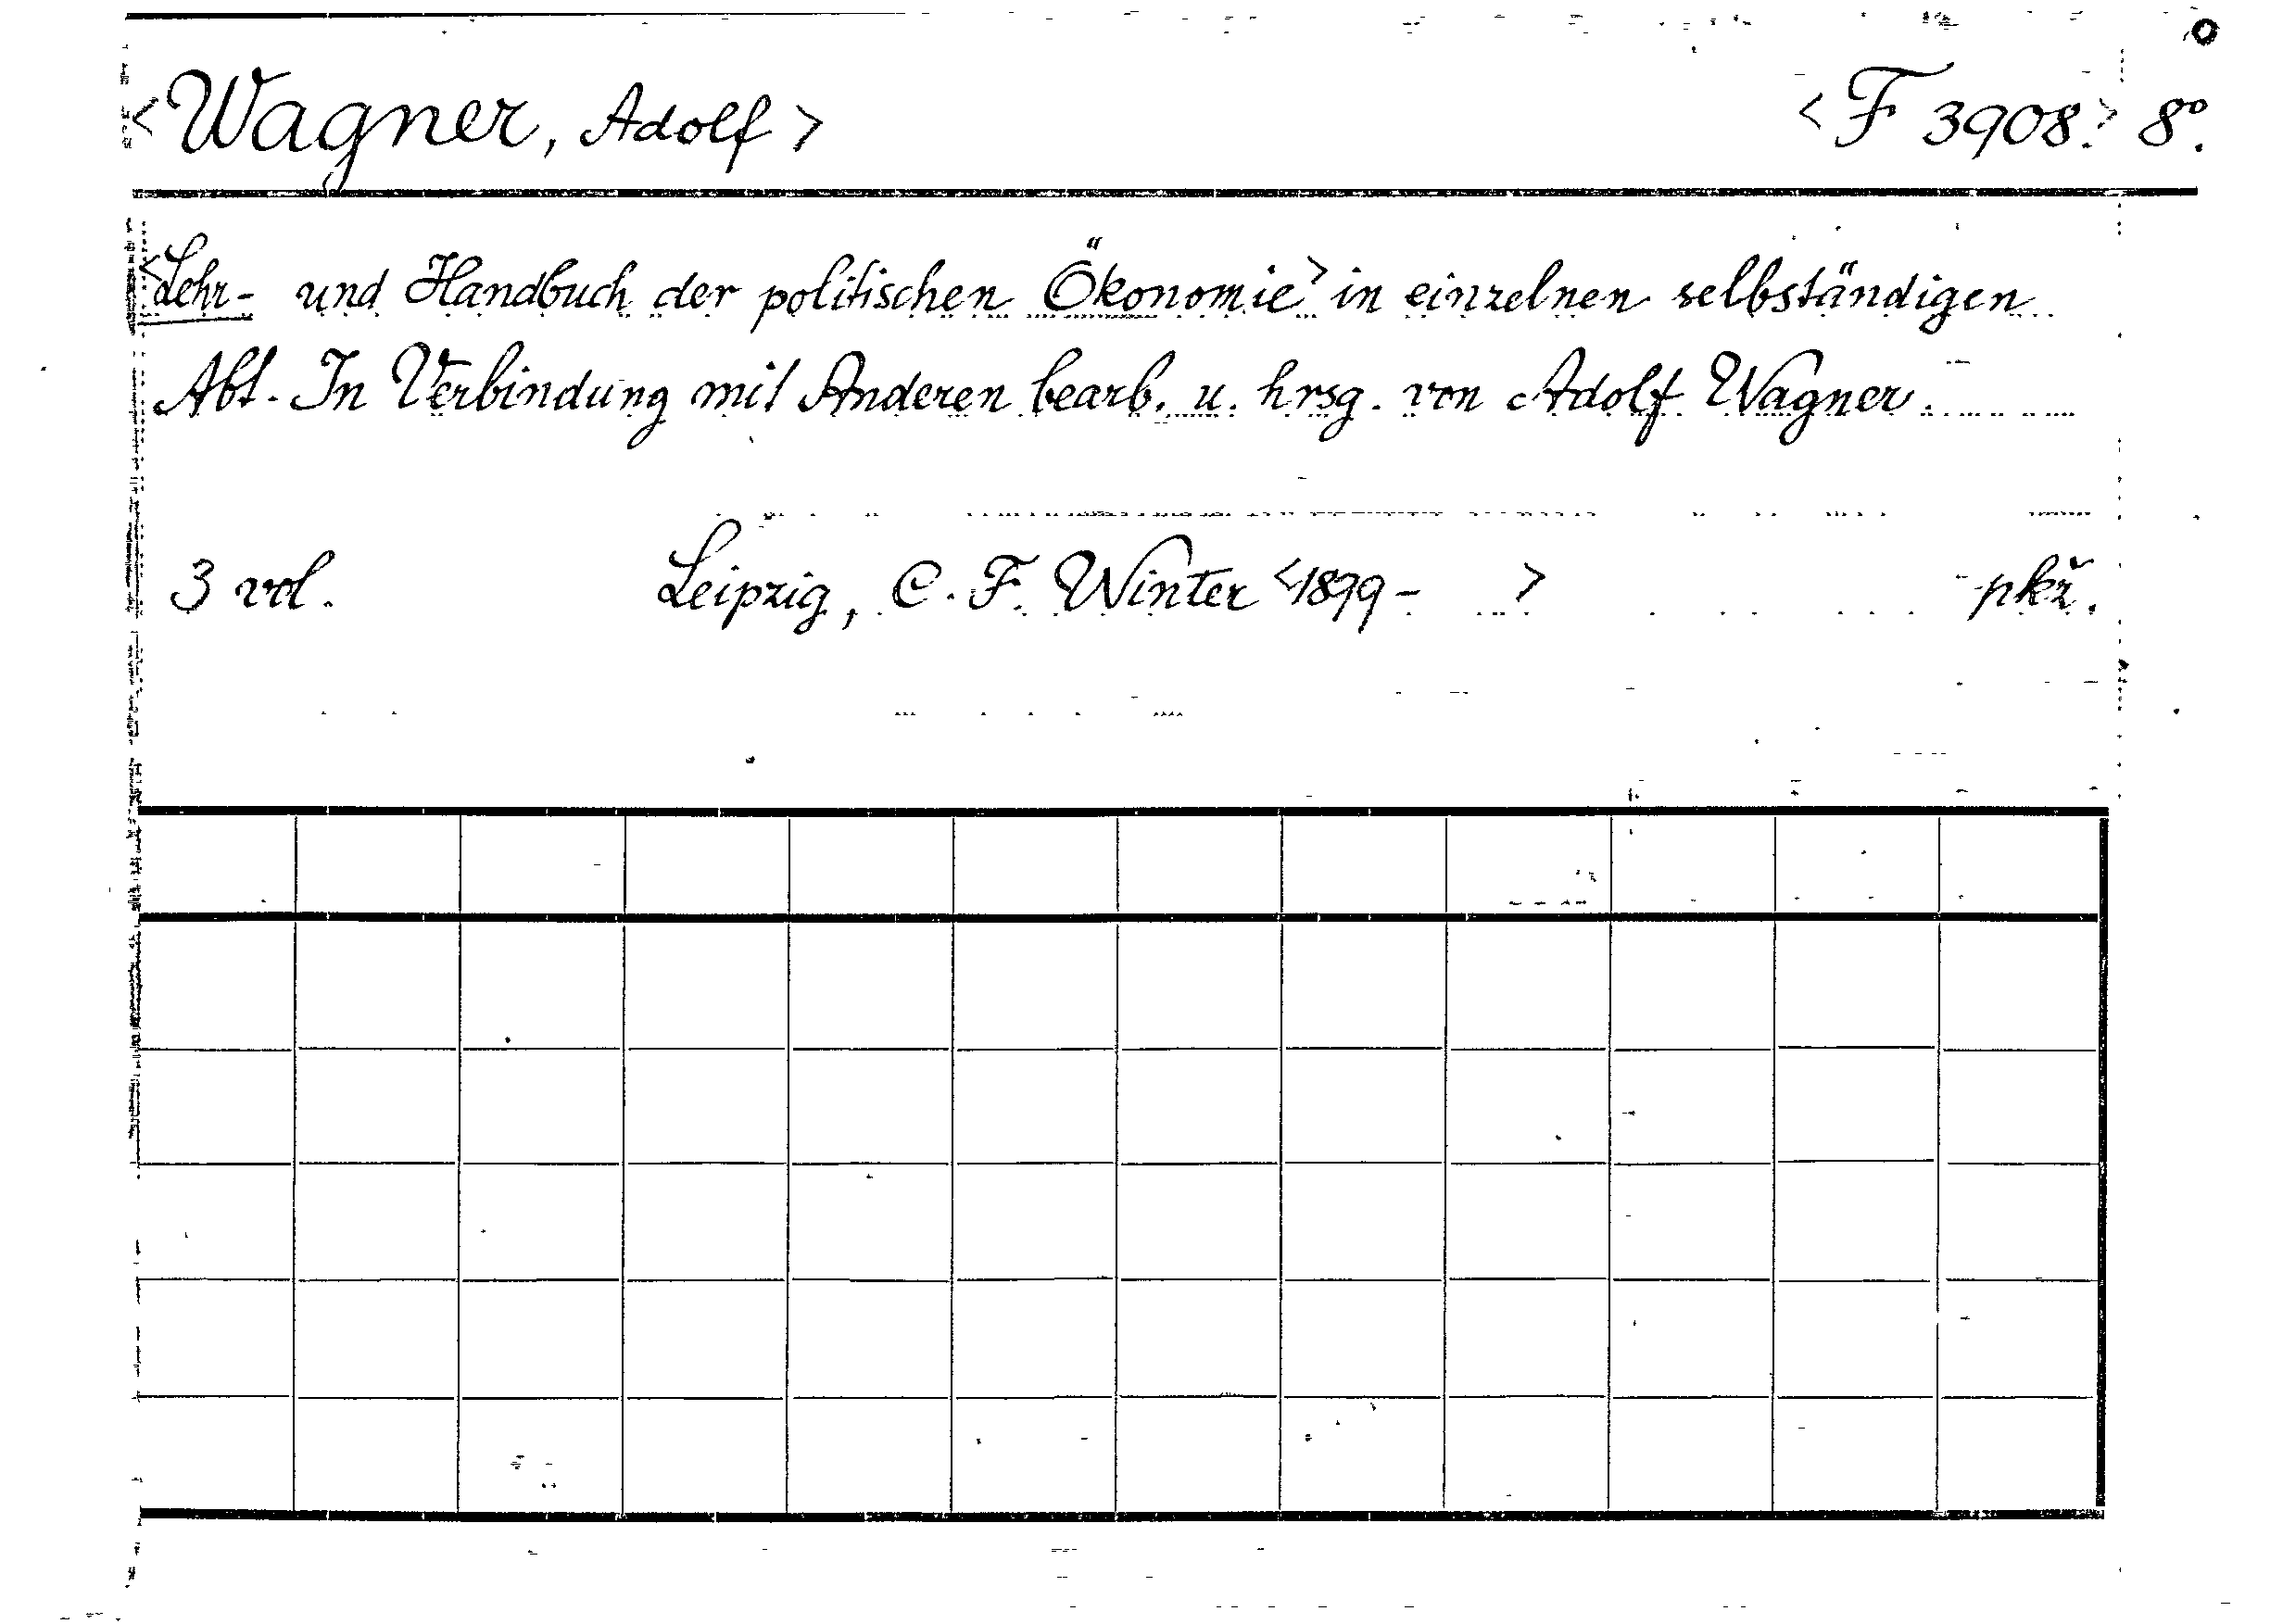 <Wagner, Adolf> <F 3908.> 8°.
<Lehr- und Handbuch der politischen Ökonomie> in einzelnen selbständigen
Abt. In Verbindung mit Anderen bearb. u. hrsg. von Adolf Wagner.
3 vol. Leipzig, C. F. Winter <1879- > pkř.